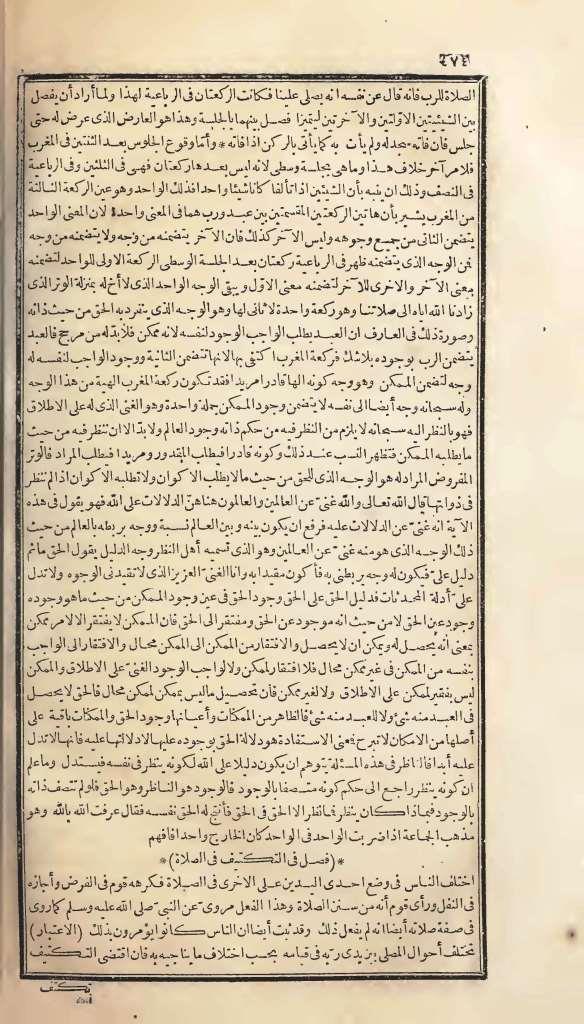 ٤٧٣
الصلاة للرب فانه قال عن نفسه انه يصلى علينا فكانت الركعتان فى الرباعية لهذا ولما أراد أن يفصل
بين الشيئيتين الاولتين والآخرتين ليتميزا فصل بينهما بالجلسة وهذا هو العارض الذى عرض له حتى
جلس فان فانه يسجد له ولم يأت به كما يأتى بالركن اذا فاته * وأمّا وقوع الجلوس بعد الثنتين فى المغرب
فلامر آخر خلاف هذا وما هى بجلسة وسطى لانه ليس بعدها ركعتان فهى فى الثلثين وفى الرباعية
فى النصف وذلك ان نبيه بأن الشيئين اذا تألفا كانا شيئا واحدا فذلك الواحد وهو عين الركعة الثالثة
من المغرب يشير بأن هاتين الركعتين المقسمتين بين عبد ورب هما فى المعنى واحدة لان المعنى الواحد
يتضمن الثانى من جميع وجوهه وليس الآخر كذلك فان الآخر يتضمنه من وجه ولا يتضمنه من وجه
فمن الوجه الذى يتضمنه ظهر فى الرباعية ركعتان بعد الجلسة الوسطى الركعة الاولى للواحد لتضمنه
معنى الآخر والاخرى للآخر لتضمنه معنى الاول ويبقى الوجه الواحد الذى لا أخ له بمنزلة الوتر الذى
زادنا الله اياه الى صلاتنا وهو ركعة واحدة لا ثانى لها وهو الوجه الذى ينفرد به الحق من حيث ذاته
وصورة ذلك فى العارف ان العبد يطلب الواجب الوجود لنفسه لانه ممكن فلا بدّ له من مرجح فالعبد
يتضمن الرب بوجوده بلا شك فركعة المغرب اكتفى بها لانها تتضمن الثانية ووجود الواجب لنفسه له
وجه لتضمن الممكن وهو وجه كونه الها قادرا مريدا فقد تكون ركعة المغرب الهية من هذا الوجه
وله سبحانه وجه أيضا الى نفسه لا يتضمن وجود الممكن جملة واحدة وهو الغنى الذى له على الاطلاق
فهو بالنظر اليه سبحانه لا يلزم من النظر فيه من حكم ذاته وجود العالم ولا بدّ الا ان ننظر فيه من حيث
ما يطلبه الممكن فتظهر النسب عند ذلك وكونه قادرا فيطلب المقدور ومريدا فيطلب المراد فالوتر
المفروض المراد له هو الوجه الذى للحق من حيث ما لا يطلب الاكوان ولا تطلبه الاكوان اذا لم تنظر
فى ذواتها قال الله تعالى والله غنى عن العالمين والعالمون هنا هنّ الدلالات على الله فهو يقول فى هذه
الآية انه غنى عن الدلالات عليه فرفع ان يكون بينه وبين العالم نسبة ووجه يربطه بالعالم من حيث
ذلك الوجه الذى هو منه غنى عن العالمين وهو الذى تسميه أهل النظر وجه الدليل يقول الحق ما ثم
دليل على فيكون له وجه يربطنى به فأكون مقيدا به وانا الغنى العزيز الذى لا تقيدنى الوجوه ولا تدل
على أدلة المحدثات فدليل الحق على الحق وجود الحق فى عين وجود الممكن من حيث ما هو وجوده
وجود عين الحق لا من حيث انه موجود عن الحق ومفتقر الى الحق فان الممكن لا يفتقر الا لامر ممكن
بمعنى انه يحصل له ويمكن ان لا يحصل والافتقار من الممكن الى الممكن محال والافتقار الى الواجب
بنفسه من الممكن فى غير ممكن محال فلا افتقار لممكن ولا لواجب الوجود الغنى على الاطلاق والممكن
ليس بفقير لممكن على الاطلاق ولا لغير ممكن فان تحصيل ما ليس بممكن لممكن محال فالحق لا يحصل
فى العبد منه شئ ولا للعبد منه شئ فالظاهر من الممكنات وأعيانها وجود الحق والممكنات باقية على
أصلها من الامكان لا تبرح فمعنى الاستفادة هو دلالة الحق بوجوده عليها لا دلالتها عليه فانها لا تدل
عليه أبدا فالناظر فى هذه المسئلة يتوهم ان يكون دليلا على الله لكونه ينظر فى نفسه فيستدل وما علم
ان كونه ينظر راجع الى حكم كونه متصفا بالوجود فالوجود هو الناظر وهو الحق فلو لم تتصف ذاته
بالوجود فبماذا كان ينظر فما نظر الا الحق فى الحق فأنتج له الحق نفسه فقال عرفت الله بالله وهو
مذهب الجماعة اذا ضربت الواحد فى الواحد كان الخارج واحدا فافهم
* (فصل فى التكتيف فى الصلاة) *
اختلف الناس فى وضع احدى اليدين على الاخرى فى الصلاة فكرهه قوم فى الفرض وأجازه
فى النفل ورأى قوم أنه من سنن الصلاة وهذا الفعل مروى عن النبى صلى الله عليه وسلم كما روى
فى صفة صلاته أيضا انه لم يفعل ذلك وقد ثبت أيضا ان الناس كانوا يؤمرون بذلك (الاعتبار)
تختلف أحوال المصلى بين يدى ربه فى قيامه بحسب اختلاف ما يناجيه به فان اقتضى التكتيف
تكتف